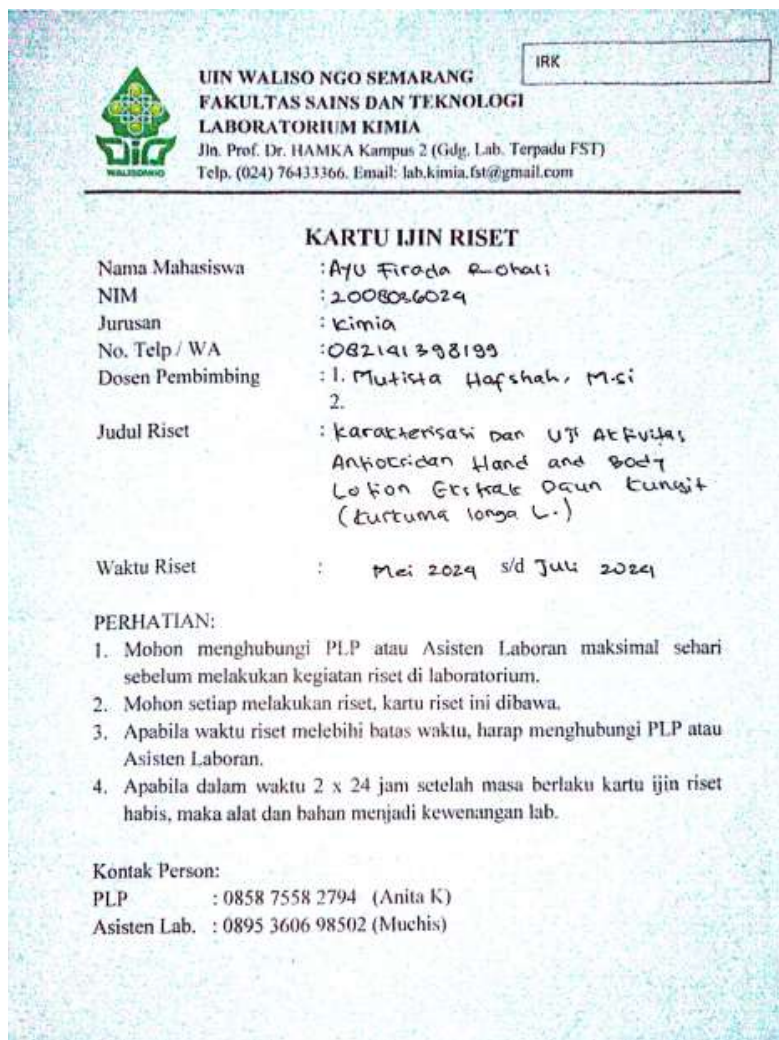 IRK
UIN WALISO NGO SEMARANG
FAKULTAS SAINS DAN TEKNOLOGI
LABORATORIUM KIMIA
Jln. Prof. Dr. HAMKA Kampus 2 (Gdg. Lab. Terpadu FST)
Telp. (024) 76433366. Email: lab.kimia.fst@gmail.com
WALISONGO
KARTU IJIN RISET
Nama Mahasiswa : Ayu Firada Rohali
NIM : 2008036024
Jurusan : Kimia
No. Telp / WA : 082141398199
Dosen Pembimbing : 1. Mutista Hafshah, M.si
2.
Judul Riset : Karakterisasi Dan Uji Aktivitas
Antioksidan Hand and Body
Lotion Ekstrak Daun Kunyit
(Kurkuma longa L.)
Waktu Riset : Mei 2024 s/d Juli 2024
PERHATIAN:
1. Mohon menghubungi PLP atau Asisten Laboran maksimal sehari
sebelum melakukan kegiatan riset di laboratorium.
2. Mohon setiap melakukan riset, kartu riset ini dibawa.
3. Apabila waktu riset melebihi batas waktu, harap menghubungi PLP atau
Asisten Laboran.
4. Apabila dalam waktu 2 x 24 jam setelah masa berlaku kartu ijin riset
habis, maka alat dan bahan menjadi kewenangan lab.
Kontak Person:
PLP : 0858 7558 2794 (Anita K)
Asisten Lab. : 0895 3606 98502 (Muchis)